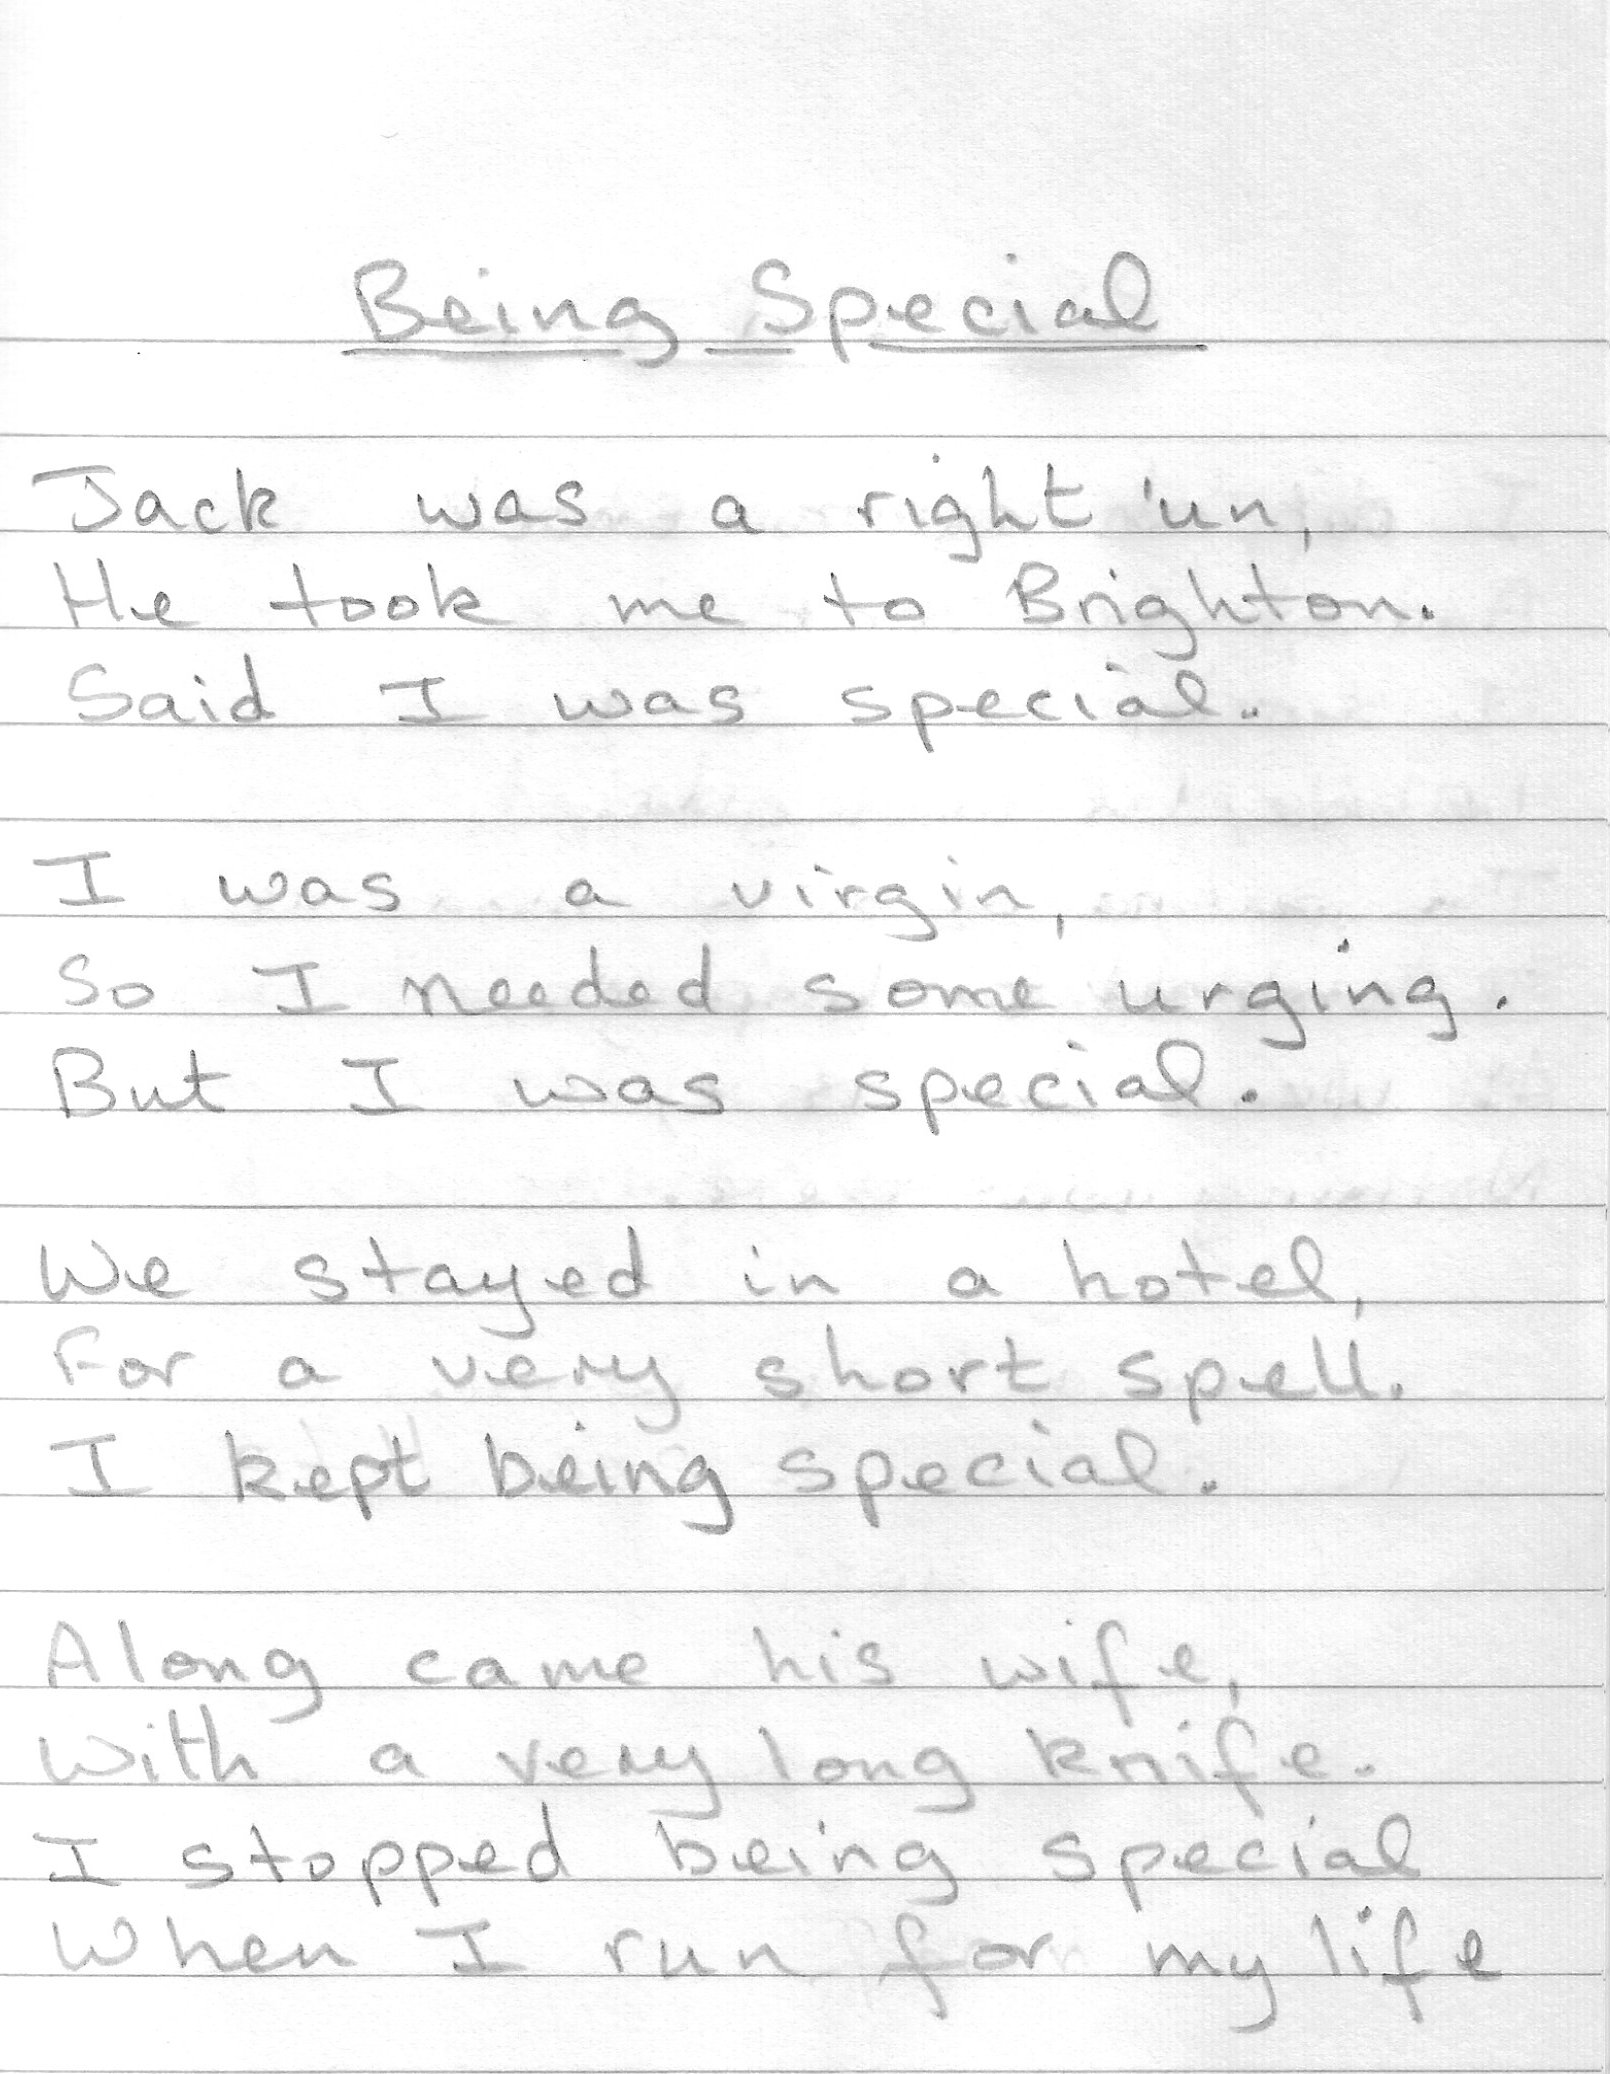 Being Special
Jack was a right 'un,
He took me to Brighton.
Said I was special.
I was a virgin,
So I needed some urging.
But I was special.
We stayed in a hotel,
For a very short spell.
I kept being special.
Along came his wife,
With a very long knife.
I stopped being special
When I run for my life